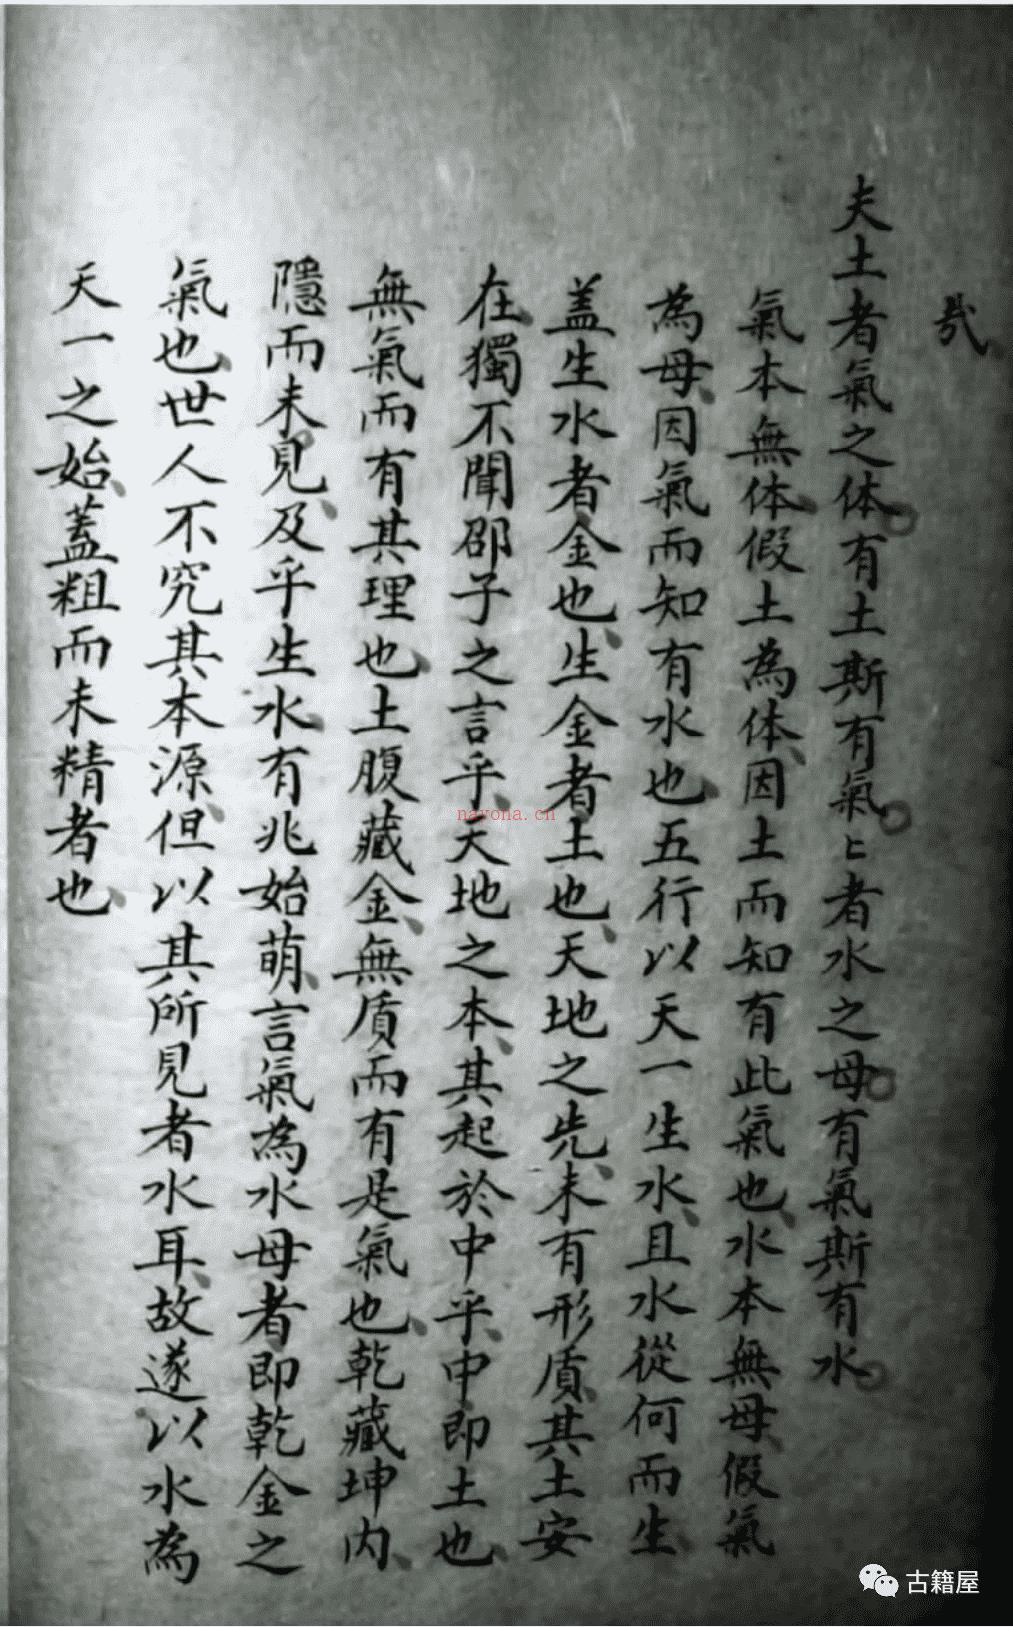 哉
夫土者氣之体有土斯有氣〻者水之母有氣斯有水
氣本無体假土為体因土而知有此氣也水本無母假氣
為母因氣而知有水也五行以天一生水且水從何而生
盖生水者金也生金者土也天地之先未有形質其土安
在獨不聞邵子之言乎天地之本其起於中乎中即土也
無氣而有其理也土腹藏金無質而有是氣也乾藏坤内
隱而未見及乎生水有兆始萌言氣為水母者即乾金之
氣也世人不究其本源但以其所見者水耳故遂以水為
天一之始蓋粗而未精者也
nayona.cn
古籍屋